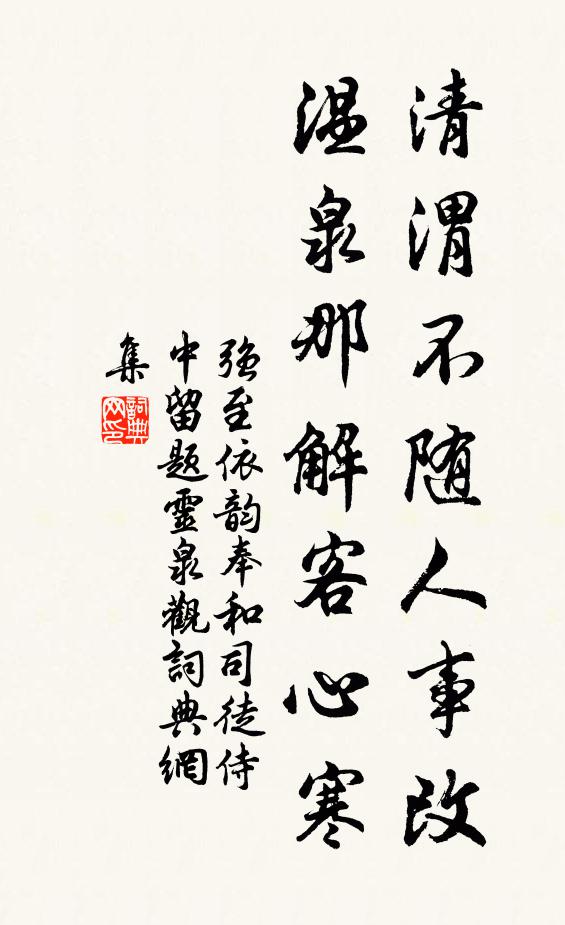 清渭不随人事改
温泉那解客心寒
强至依韵奉和司徒侍
中留题靈泉觀詞典網
集
詞典网印